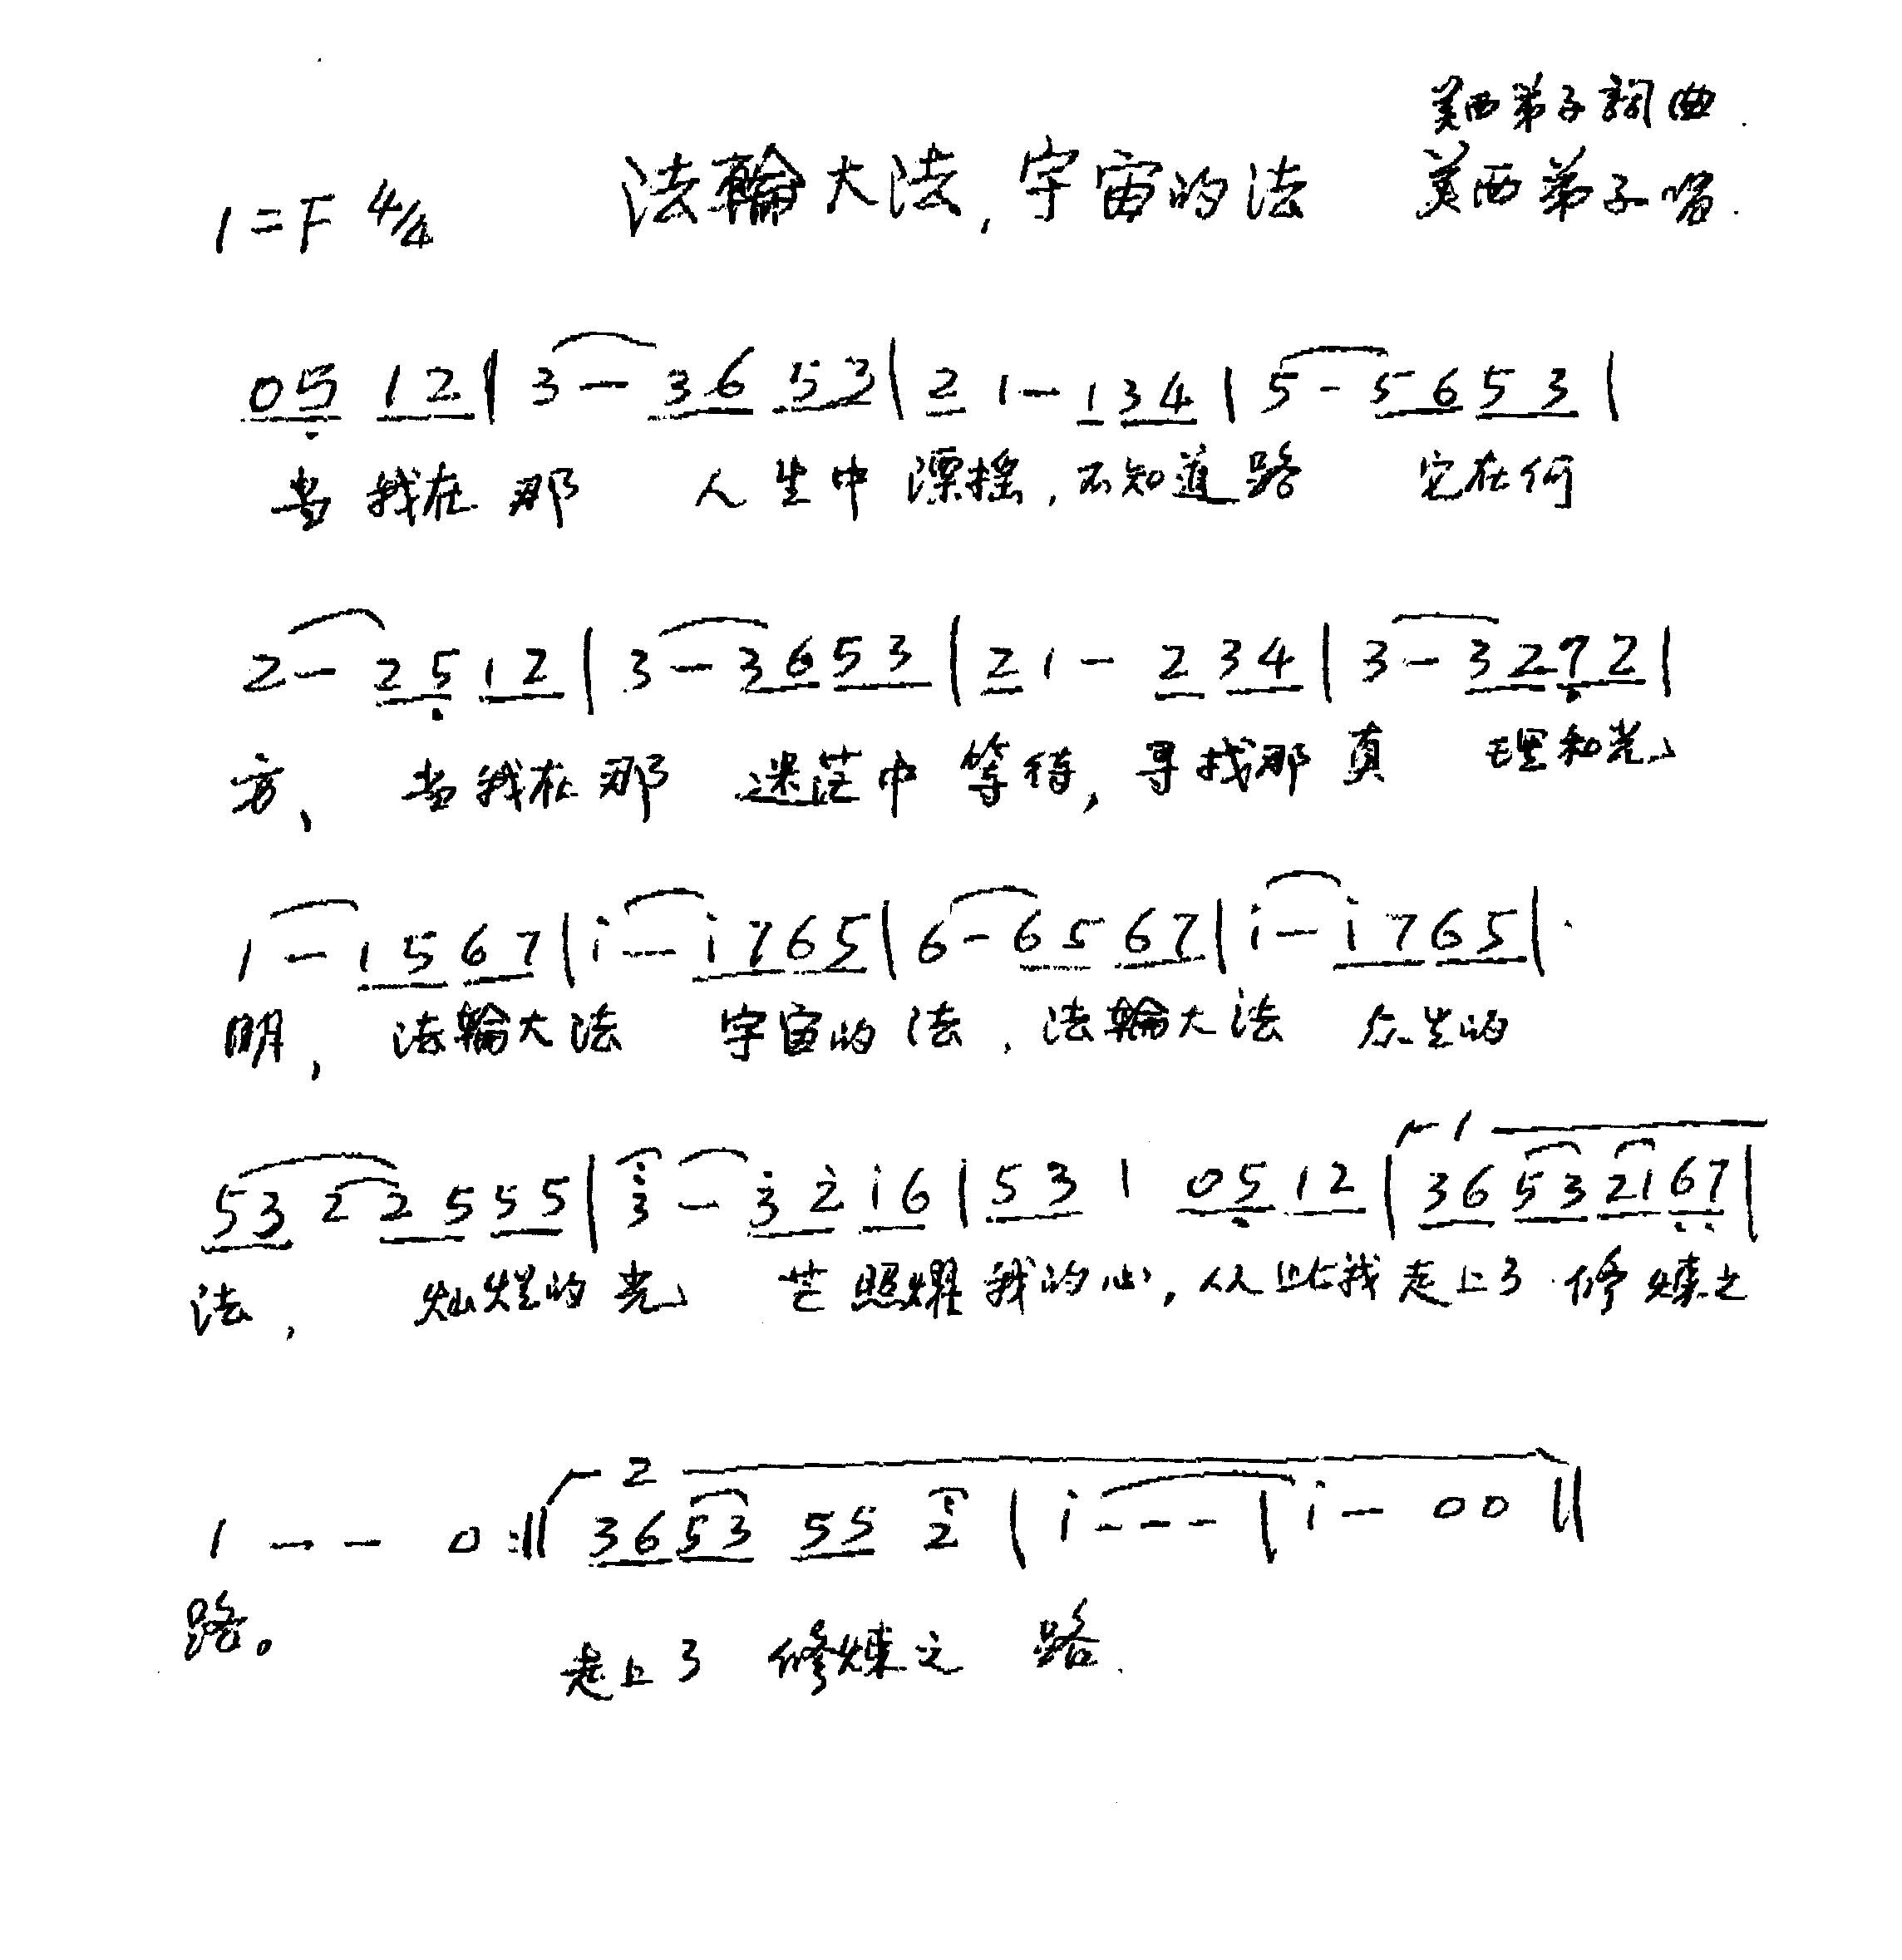 美西弟子詞曲
1=F 4/4 法輪大法,宇宙的法 美西弟子唱.
05 12|3-36 53|21-134|5-5653|
当我在那 人生中漂摇,不知道路 它在何
2-2512|3-3653|21-234|3-3272|
方、当我在那 迷茫中等待,寻找那真 理和光
1-1567|i-i765|6-6567|i-i765|
明,法輪大法 宇宙的法,法輪大法 众生的
532 2555|3-32i6|531 0512|1 36532167|
法,灿烂的光 芒照耀我的心,从此我走上了修煉之
1--0:‖2 3653 55 2|i---|i-00‖
路。 走上了 修煉之 路.